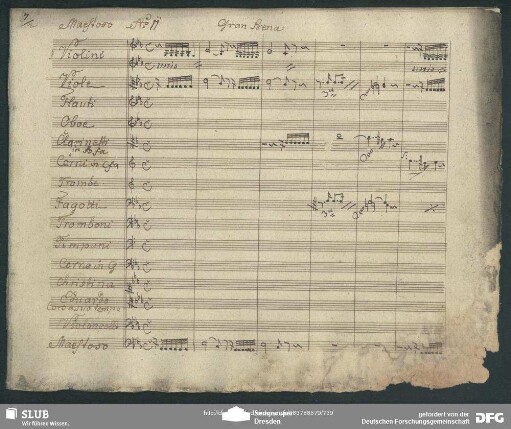 Maestoso No 11 Gran Scena
Violini
unis
unis
Viole
Flauti
Oboe
Clarinetti
in B fa
Corni in Efa
Trombe
Fagotti
Tromboni
Timpani
Corno in G
Christina
Eduardo
Violoncello
Maestoso
SLUB
Wir führen Wissen.
Dresden
gefördert von der
Deutschen Forschungsgemeinschaft
DFG